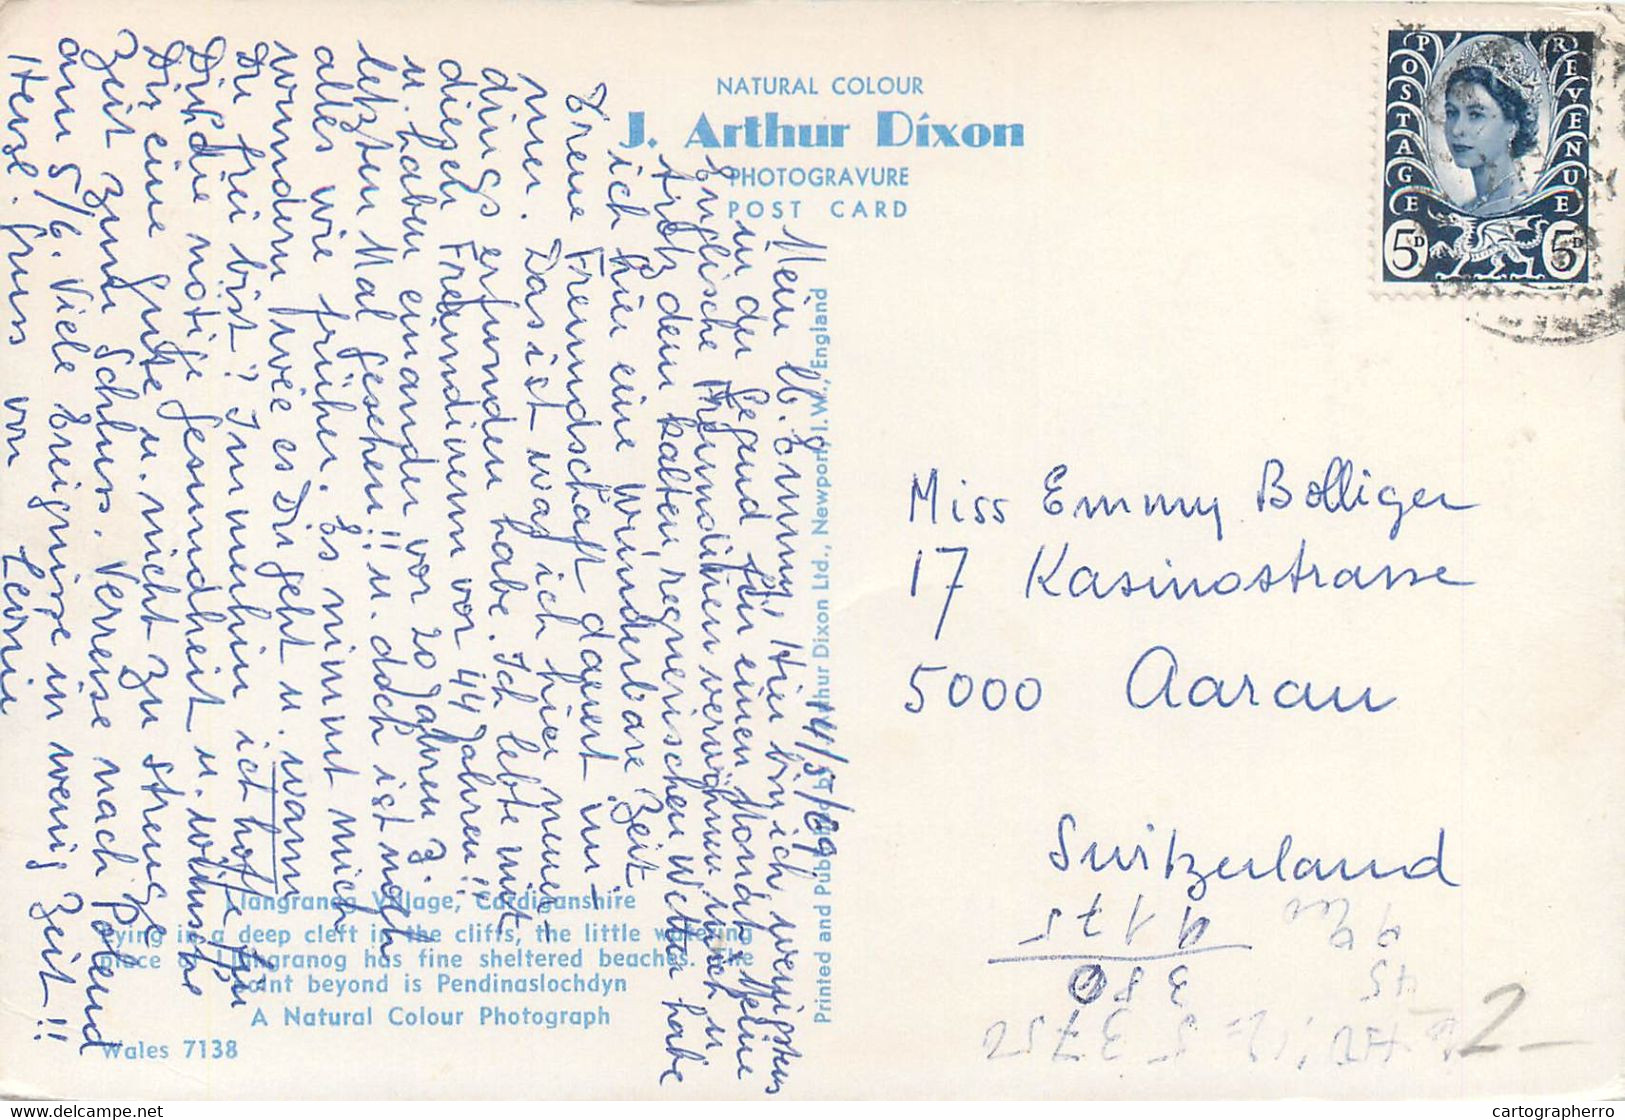 NATURAL COLOUR
J. Arthur Dixon
PHOTOGRAVURE
POST CARD
POSTAGE
REVENUE
5D
5D
14/5/69
Mein lb. Emmy, Hier bin ich wenigstens
in der Gegend für einen Monat. Meine
Englische Freundinen verwöhnen mich u.
trotz dem kalten regnerischen Wetter habe
ich hier eine wunderbare Zeit.
Treue Freundschaft dauert im-
mer. Das ist was ich hier neuer-
dings erfunden habe. Ich lebte mit
diesen Freundinen vor 44 Jahren!!
u. haben einander vor 20 Jahren z.
letzten Mal gesehen!! u. doch ist noch
alles wie früher. Es nimmt mich
wundern wie es Dir geht u. wann
Du frei bist? Immerhin ich hoffe für
Dich die nötige Gesundheit u. wünsche
Dir eine gute u. nicht zu strenge
Zeit zum Schluss. Verreise nach Polen
am 5/6. Viele Ereignisse in wenig Zeit!!
Herzl. Gruss von Leonie
Miss Emmy Bolliger
17 Kasinostrasse
5000 Aarau
Switzerland
Printed and Published by J. Arthur Dixon Ltd., Newport, I.W., England
Llangranog Village, Cardiganshire
Lying in a deep cleft in the cliffs, the little watering
place of Llangranog has fine sheltered beaches. The
point beyond is Pendinaslochdyn
A Natural Colour Photograph
Wales 7138
2-
cartographerro